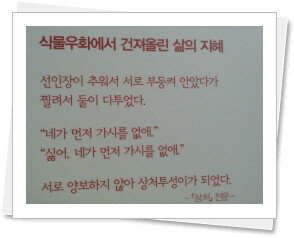 식물우화에서 건져올린 삶의 지혜
선인장이 추워서 서로 부둥켜 안았다가
찔려서 둘이 다투었다.
“네가 먼저 가시를 없애.”
“싫어. 네가 먼저 가시를 없애.”
서로 양보하지 않아 상처투성이가 되었다.
-「상처」 전문-